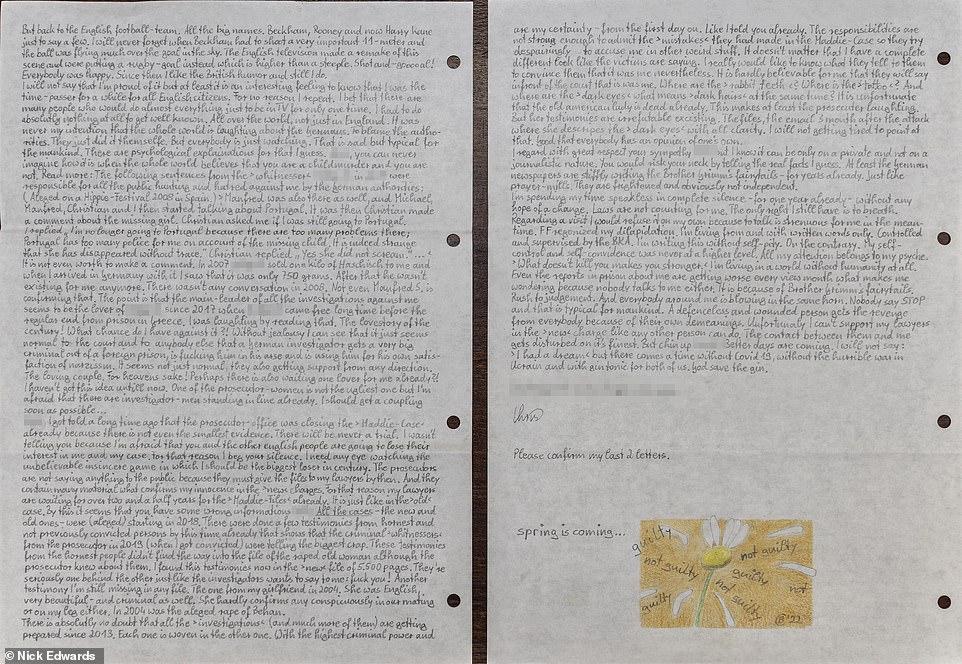 But back to the English football-team. All the big names. Beckham, Rooney and now Harry Kane
just to say a few. I will never forget when Beckham had to shoot a very important 11-meter and
the ball was flying much over the goal in the sky. The English television made a remake of this
scene and were putting a rugby-goal instead which is higher than a steeple. Shot and-goooal!
Everybody was happy. Since then I like the British humor and still do.
I will not say that I'm proud of it but at least it is an interesting feeling to know that I was the
time-passer for a while for all English citizens. For no reason, I repeat. I bet that there are
many people who would do almost everything just to be in TV for only one time, I had to do
absolutely nothing at all to get well known. All over the world, not just in England. It was
never my intention that the whole world is laughing about the Germans. To blame the autho-
rities. They just did it themself. But everybody is just watching. That is sad but typical for
the mankind. There are psychological explanations for that I guess. you can never
imagine how it is when the whole world believes that you are a childmurderer and you are
not. Read more: The following sentences from the >whitnesses< in were
responsible for all the public hunting and hatred against me by the german authorities:
(Aleged on a Hippie-Festival 2008 in Spain.) >Manfred was also there as well, and Michael,
Manfred, Christian and I then started talking about Portugal. It was then Christian made
a comment about the missing girl. Christian asked me if I was still going to Portugal.
I replied, "I'm no longer going to Portugal because there are too many problems there;
Portugal has too many police for me on account of the missing child. It is indeed strange
that she has disappeared without trace." Christian replied, "Yes she did not scream."...<
It is not even worth to make a comment. In 2007 sold one kilo of Haschisch to me and
when I arrived in germany with it I saw that is was only 750 grams. After that he wasn't
existing for me anymore. There wasn't any conversation in 2008. Not even Manfred S. is
confirming that. The point is that the main-leader of all the investigations against me
seems to be the lover of since 2017 when came free long time before the
regular end from prison in Greece. I was laughing by reading that. The lovestory of the
century! What chance do I have against it?! Without jealousy I can see that it just seems
normal to the court and to anybody else that a german investigator gets a very big
criminal out of a foreign prison, is fucking him in his arse and is using him for his own satis-
faction of narzissm. It seems not just normal, they also getting support from any direction.
The loving couple, for heavens sake! Perhaps there is also waiting one lover for me already?!
I haven't got this idea until now. One of the prosecutor-women is not the ugliest one but I'm
afraid that there are investigator-men standing in line already. I should get a coupling
soon as possible...
I got told a long time ago that the prosecutor-office was closing the >Maddie-Case<
already because there is not even the smallest evidence. There will be never a trial. I wasn't
telling you because I'm afraid that you and the other english people are going to lose their
interest in me and my case, for that reason I beg your silence. I need any eye watching the
unbelievable insincere game in which I should be the biggest loser in century. The prosecutors
are not saying anything to the public because they must give the files to my lawyers by then. And they
contain many material what confirms my innocence in the >new charges<. For that reason my lawyers
are waiting for over two and a half years for the >Maddie-Files< already. It is just like in the >old<
case, by this it seems that you have some wrong informations All the cases-the new and
old ones-were (aleged) starting in 2013. There were done a few testimonies from honnest and
not previously convicted persons by this time already that shows that the criminal >whitnessers<
from the prosecutor in 2019 (when I got convicted) were telling the biggest crap. These testimonies
from the honnest people didn't find the way into the file of the raped old woman although the
prosecutor knew about them. I found this testimonies now in the >new< file of 5.500 pages. They're
seriously one behind the other just like the investigators wants to say to me: fuck you! Another
testimony I'm still missing in any file. The one from my girlfriend in 2004. She was English,
very beautiful - and criminal as well. She hardly confirms any conspicuously in our mating
or on my leg either. In 2004 was the aleged rape of Behan.
There is absolutly no doubt that all the >investigations< (and much more of them) are getting
prepared since 2013. Each one is woven in the other one. With the highest criminal power and
are my certainty - from the first day on. Like I told you already. The responsibilities are
not strong enough to admit the >mistakes< they had made in the Maddie-Case so they try
despairingly - to accuse me in other weird stuff. It doesn't matter that I have a complete
different look like the victims are saying. I really would like to know what they tell to them
to convince them that it was me nevertheless. It is hardly believable for me that they will say
infront of the court that is was me. Where are the >rabbit teeth<? Where is the >tattoo<? And
where are the >dark eyes< what means >dark hairs< at the same time? It is unfortunate
that the old american lady is dead already. This makes at least the prosecuter laughting.
But her testimonies are irrefutable excisting. The files, the email 3 month after the attack
where she describes the >dark eyes< with all clarity. I will not getting tired to point at
that. Good that everybody has an opinion of one's own.
I regard with great respect your sympathy but I know it can be only on a private and not on a
journalistic nature. You would risk your neck by telling the real facts I guess. At least the german
newspapers are stiffly writing the Brother grimm's fairytails-for years already. Just like
prayer-mills. They are frightened and obviously not independent.
I'm spending my time speakless in complete silence - for one year already - without any
hope of a change. Laws are not counting for me. The only right I still have is to breath.
Regarding a visit I would refuse for my own because to talk is too strenuous for me in the mean-
time. FF regonized my dilapidation. I'm living from and with written words only. Controlled
and supervised by the BKA. I'm writing this without self-pity. On the contrary. My self-
control and self-confidence was never at a higher level. All my attention belongs to my psyche.
>What doesn't kill you makes you stronger.< I'm living in a world without humanity at all.
Even the reports in prison about me are getting worse every view month what makes me
wondering because nobody talks to me either. It is because of Brother grimm's fairytails.
Rush to judgement. And everybody around me is blowing in the same horn. Nobody say STOP
and that is typical for mankind. A defenceless and wounded person gets the revenge
from everybody because of their own demeanings. Unfortunatly I can't support my lawyers
in the >new< charge like any other person can do. The contact between them and me
gets disturbed on it's finest. But chin up Better days are coming. I will not say:
>I had a dream< but there comes a time without Covid 19, without the horrible war in
Ucrain and with gin tonic for both of us. God save the gun.
Chris
Please confirm my last 2 letters.
spring is coming...
guilty
not guilty
not guilty
guilty
guilty
not guilty
not
CB '22
© Nick Edwards